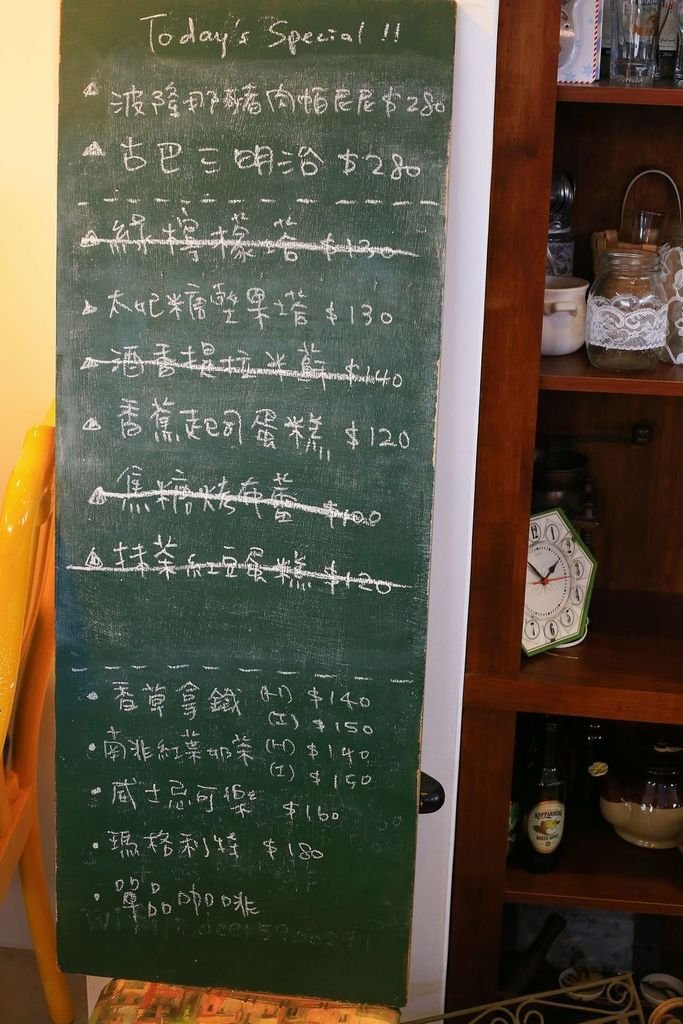 Today's Special !!
波隆那豬肉帕尼尼 $280
古巴三明治 $280
綠檸檬塔 $130
太妃糖堅果塔 $130
酒香提拉米蘇 $140
香蕉起司蛋糕 $120
焦糖烤布蕾 $100
抹茶紅豆蛋糕 $120
香草拿鐵 (H) $140
(I) $150
南非紅葉奶茶 (H) $140
(I) $150
威士忌可樂 $160
瑪格利特 $180
單品咖啡
KOPPARBERG